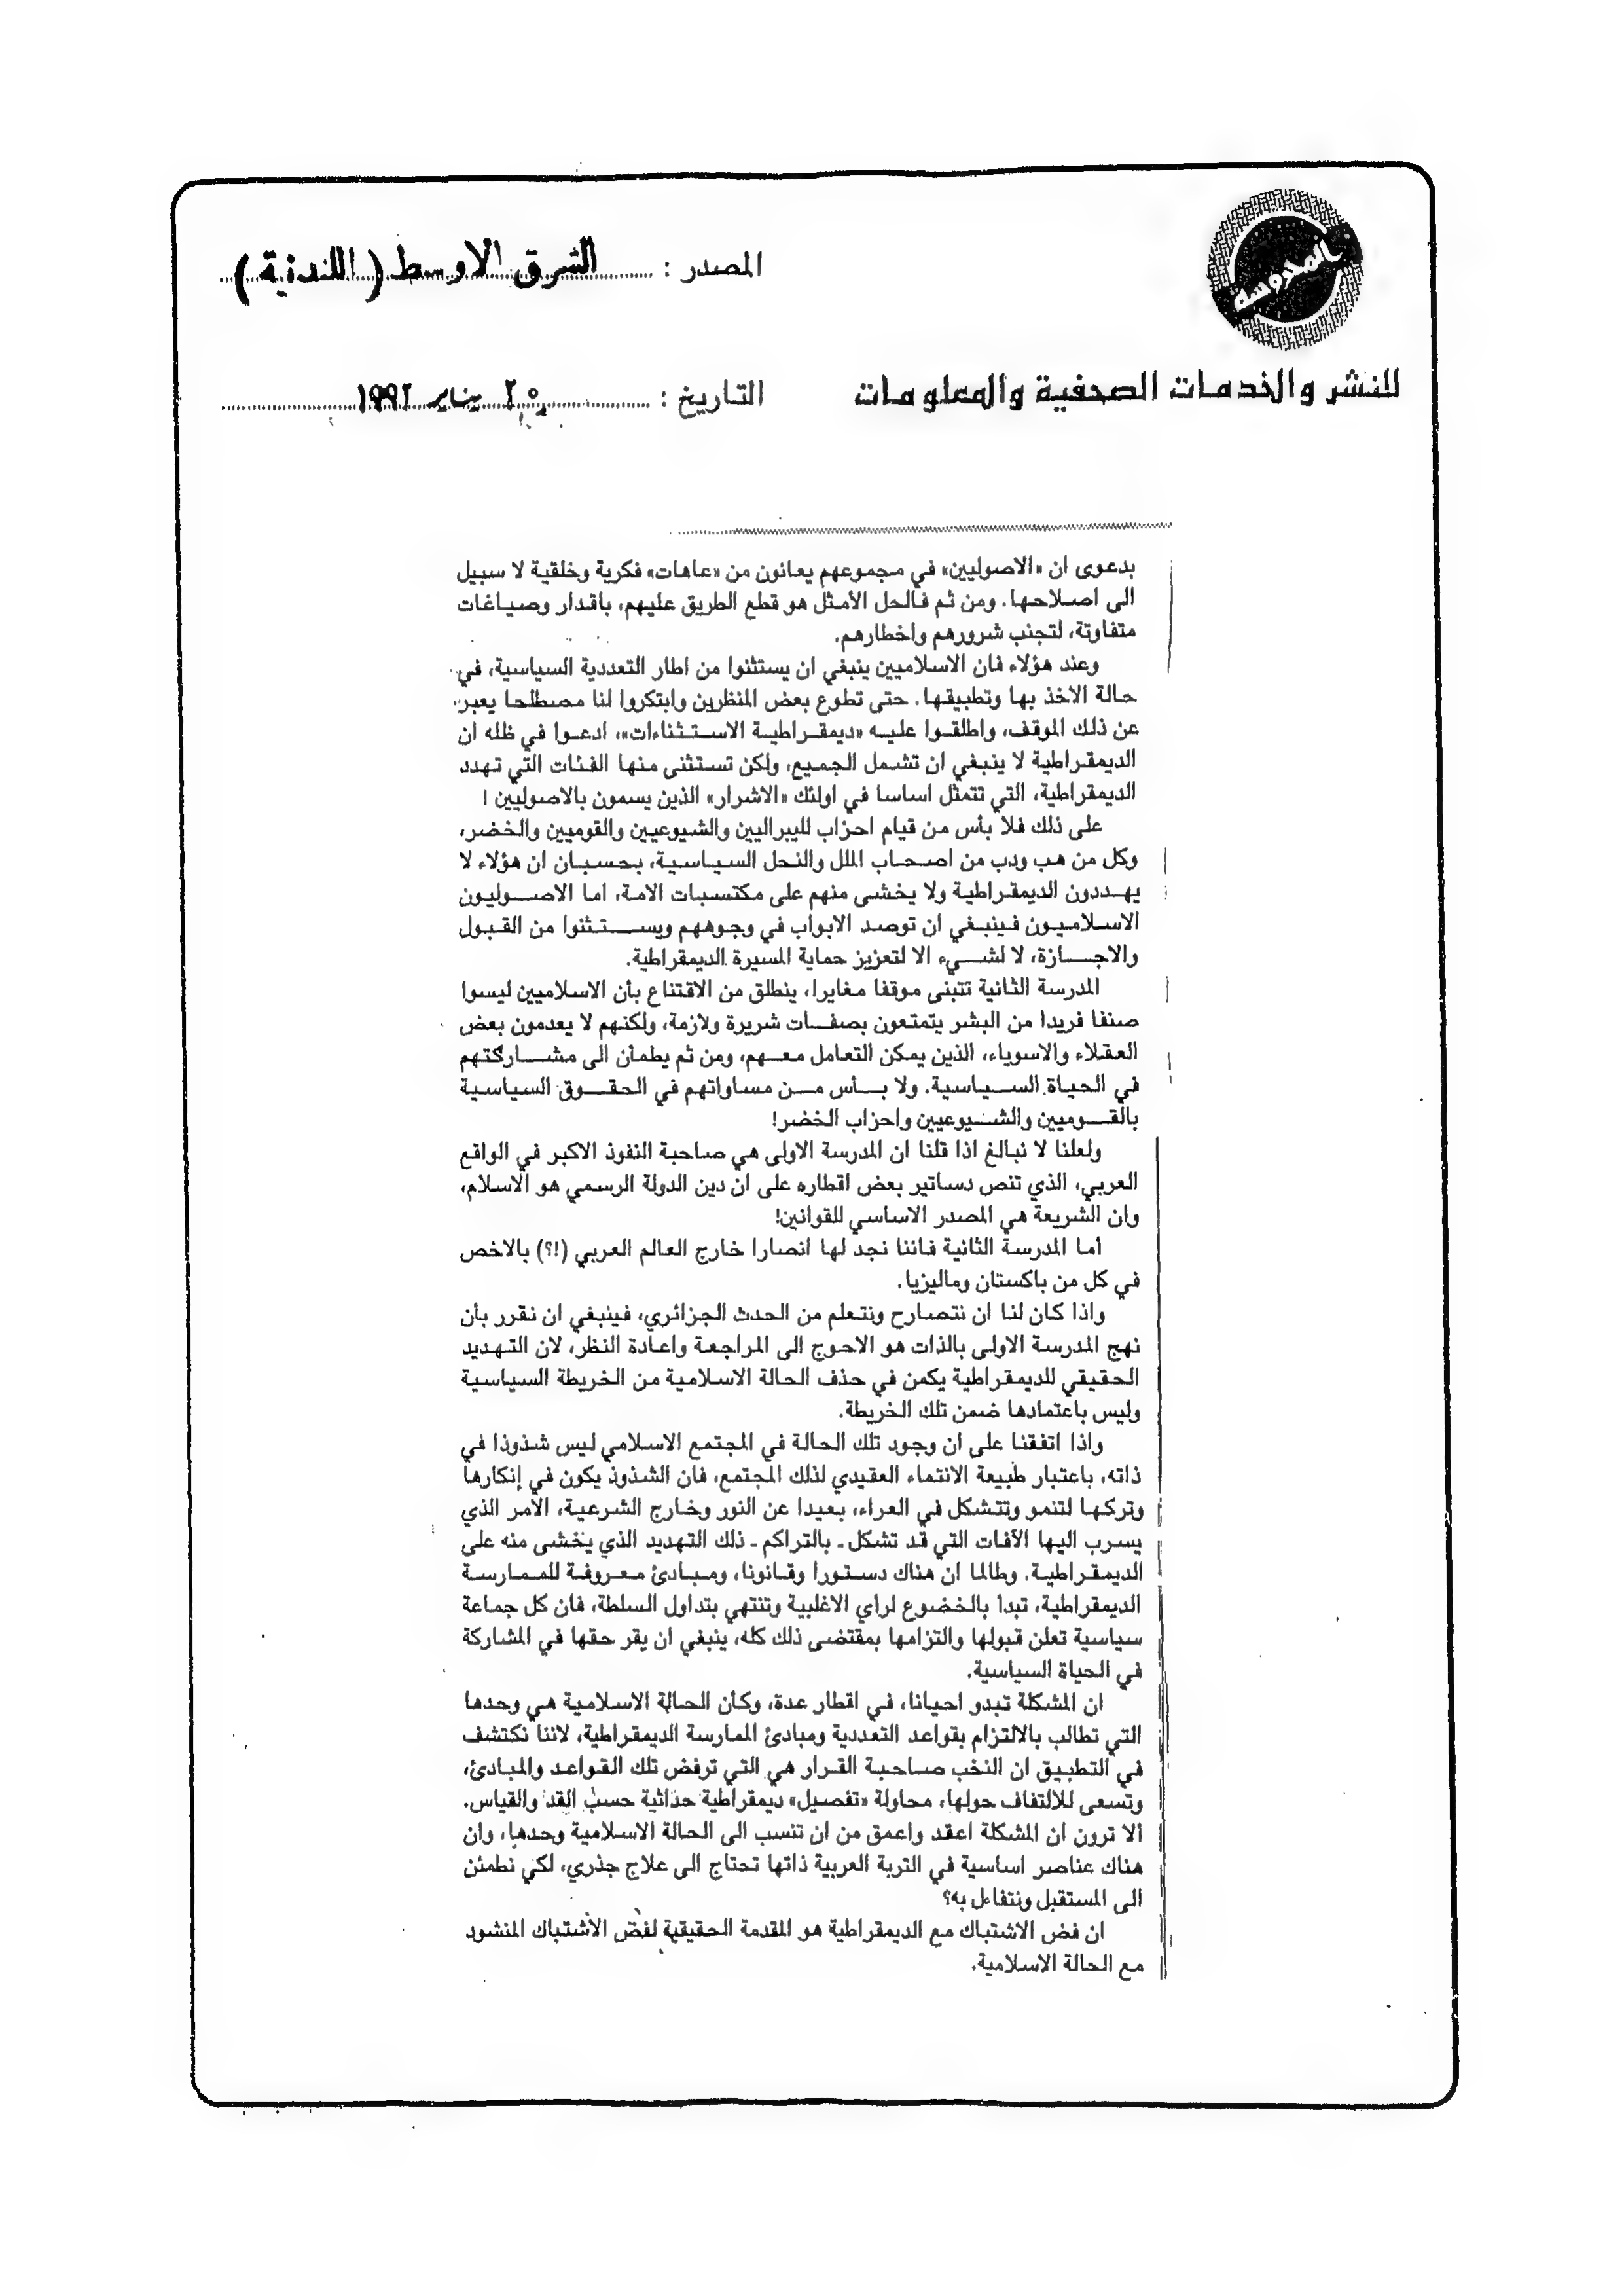 المحروسة
المصدر : الشرق الاوسط (اللندنية)
للنشر والخدمات الصحفية والمعلومات
التاريخ : ٢٥ يناير ١٩٩٢
بدعوى ان «الاصوليين» في مجموعهم يعانون من «عاهات» فكرية وخلقية لا سبيل
الى اصلاحها. ومن ثم فالحل الأمثل هو قطع الطريق عليهم، باقدار وصياغات
متفاوتة، لتجنب شرورهم واخطارهم.
وعند هؤلاء فان الاسلاميين ينبغي ان يستثنوا من اطار التعددية السياسية، في
حالة الاخذ بها وتطبيقها. حتى تطوع بعض المنظرين وابتكروا لنا مصطلحا يعبر
عن ذلك الموقف، واطلقوا عليه «ديمقراطية الاستثناءات»، ادعوا في ظله ان
الديمقراطية لا ينبغي ان تشمل الجميع، ولكن تستثنى منها الفئات التي تهدد
الديمقراطية، التي تتمثل اساسا في اولئك «الاشرار» الذين يسمون بالاصوليين !
على ذلك فلا بأس من قيام احزاب لليبراليين والشيوعيين والقوميين والخضر،
وكل من هب ودب من اصحاب الملل والنحل السياسية، بحسبان ان هؤلاء لا
يهددون الديمقراطية ولا يخشى منهم على مكتسبات الامة، اما الاصوليون
الاسلاميون فينبغي ان توصد الابواب في وجوههم ويستثنوا من القبول
والاجازة، لا لشيء الا لتعزيز حماية المسيرة الديمقراطية.
المدرسة الثانية تتبنى موقفا مغايرا، ينطلق من الاقتناع بأن الاسلاميين ليسوا
صنفا فريدا من البشر يتمتعون بصفات شريرة ولازمة، ولكنهم لا يعدمون بعض
العقلاء والاسوياء، الذين يمكن التعامل معهم، ومن ثم يطمأن الى مشاركتهم
في الحياة السياسية. ولا بأس من مساواتهم في الحقوق السياسية
بالقوميين والشيوعيين واحزاب الخضر!
ولعلنا لا نبالغ اذا قلنا ان المدرسة الاولى هي صاحبة النفوذ الاكبر في الواقع
العربي، الذي تنص دساتير بعض اقطاره على ان دين الدولة الرسمي هو الاسلام،
وان الشريعة هي المصدر الاساسي للقوانين!
أما المدرسة الثانية فاننا نجد لها انصارا خارج العالم العربي (؟!) بالاخص
في كل من باكستان وماليزيا.
واذا كان لنا ان نتصارح ونتعلم من الحدث الجزائري، فينبغي ان نقرر بأن
نهج المدرسة الاولى بالذات هو الاحوج الى المراجعة واعادة النظر، لان التهديد
الحقيقي للديمقراطية يكمن في حذف الحالة الاسلامية من الخريطة السياسية
وليس باعتمادها ضمن تلك الخريطة.
واذا اتفقنا على ان وجود تلك الحالة في المجتمع الاسلامي ليس شذوذا في
ذاته، باعتبار طبيعة الانتماء العقيدي لذلك المجتمع، فان الشذوذ يكون في إنكارها
وتركها لتنمو وتتشكل في العراء، بعيدا عن النور وخارج الشرعية، الأمر الذي
يسرب اليها الآفات التي قد تشكل ـ بالتراكم ـ ذلك التهديد الذي يخشى منه على
الديمقراطية. وطالما ان هناك دستورا وقانونا، ومبادئ معروفة للممارسة
الديمقراطية، تبدا بالخضوع لراي الاغلبية وتنتهي بتداول السلطة، فان كل جماعة
سياسية تعلن قبولها والتزامها بمقتضى ذلك كله، ينبغي ان يقر حقها في المشاركة
في الحياة السياسية.
ان المشكلة تبدو احيانا، في اقطار عدة، وكأن الحالة الاسلامية هي وحدها
التي تطالب بالالتزام بقواعد التعددية ومبادئ الممارسة الديمقراطية، لاننا نكتشف
في التطبيق ان النخب صاحبة القرار هي التي ترفض تلك القواعد والمبادئ،
وتسعى للالتفاف حولها، محاولة «تفصيل» ديمقراطية حداثية حسب القد والقياس.
الا ترون ان المشكلة اعقد واعمق من ان تنسب الى الحالة الاسلامية وحدها، وان
هناك عناصر اساسية في التربة العربية ذاتها تحتاج الى علاج جذري، لكي نطمئن
الى المستقبل ونتفاءل به؟
ان فض الاشتباك مع الديمقراطية هو المقدمة الحقيقية لفض الاشتباك المنشود
مع الحالة الاسلامية.